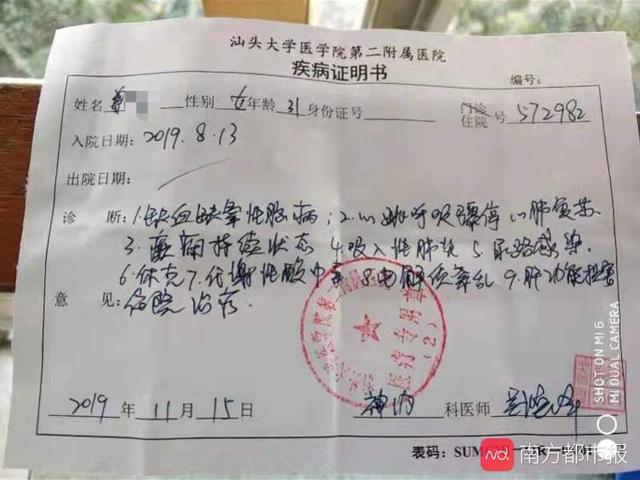 汕头大学医学院第二附属医院
疾病证明书
编号:
姓名 性别 女 年龄 31 身份证号 门诊 住院 号 572982
入院日期: 2019.8.13
出院日期:
诊 断: 1.缺血缺氧性脑病; 2.心跳呼吸骤停 心肺复苏
3.癫痫持续状态 4.吸入性肺炎 5.尿路感染
6.休克 7.代谢性酸中毒 8.电解质紊乱 9.肝功能损害
意 见: 住院治疗.
医疗专用章
(2)
2019 年 11 月 15 日 神内 科医师
表码: SUMC
SHOT ON MI 6
MI DUAL CAMERA
Nd. 南方都市报